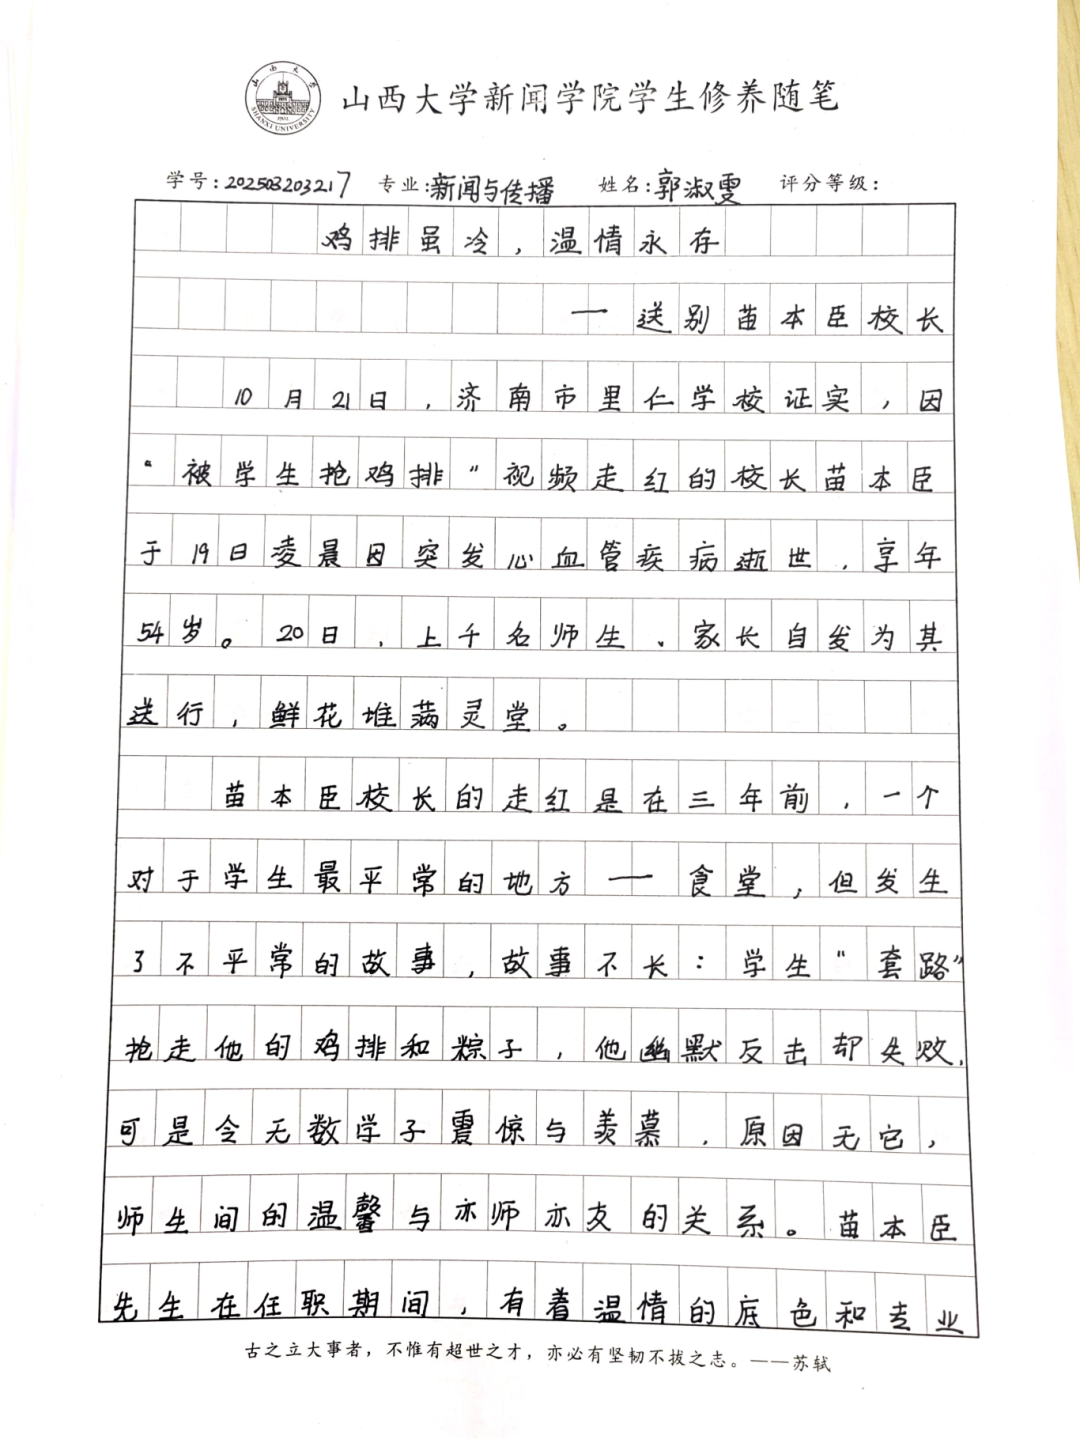 山西大学
SHANXI UNIVERSITY
1902
山西大学新闻学院学生修养随笔
学号:202503203217 专业:新闻与传播 姓名:郭淑雯 评分等级:
鸡排虽冷,温情永存
—送别苗本臣校长
10月21日,济南市里仁学校证实,因
“被学生抢鸡排”视频走红的校长苗本臣
于19日凌晨因突发心血管疾病逝世,享年
54岁。20日,上千名师生、家长自发为其
送行,鲜花堆满灵堂。
苗本臣校长的走红是在三年前,一个
对于学生最平常的地方——食堂,但发生
了不平常的故事,故事不长:学生“套路”
抢走他的鸡排和粽子,他幽默反击却失败,
可是令无数学子震惊与羡慕,原因无它,
师生间的温馨与亦师亦友的关系。苗本臣
先生在任职期间,有着温情的底色和专业
古之立大事者,不惟有超世之才,亦必有坚韧不拔之志。——苏轼